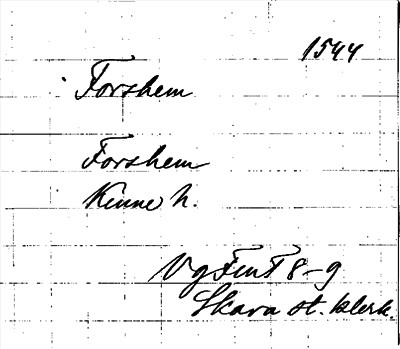 1544
Forshem
Forshem
Kinne h.
Vg Fmt 8-9
Skara st. klerk.